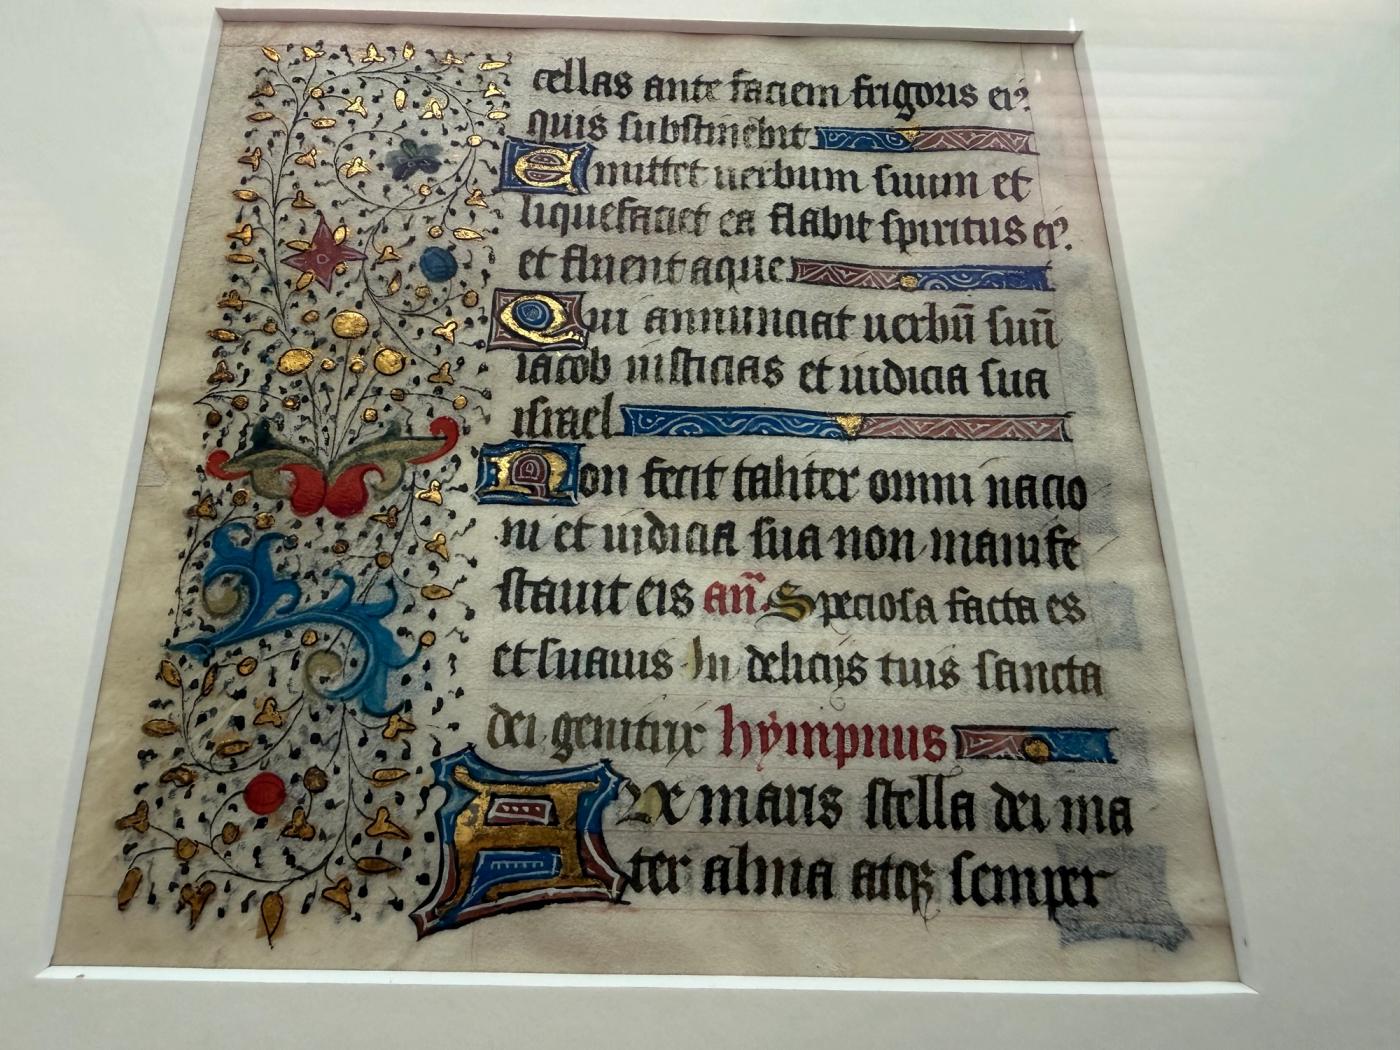 cellas ante faciem frigoris eiꝰ
quis substinebit
Emittet uerbum suum et
liquefaciet ea flabit spiritus eiꝰ.
et fluent aque
Qui annunciat uerbū suū
iacob iusticias et iudicia sua
israel
Non fecit taliter omni nacio
ni et iudicia sua non manife
stauit eis an̄. Speciosa facta es
et suauis In delicijs tuis sancta
dei genitrix hympnus
Aue maris stella dei ma
ter alma atqꝫ semper